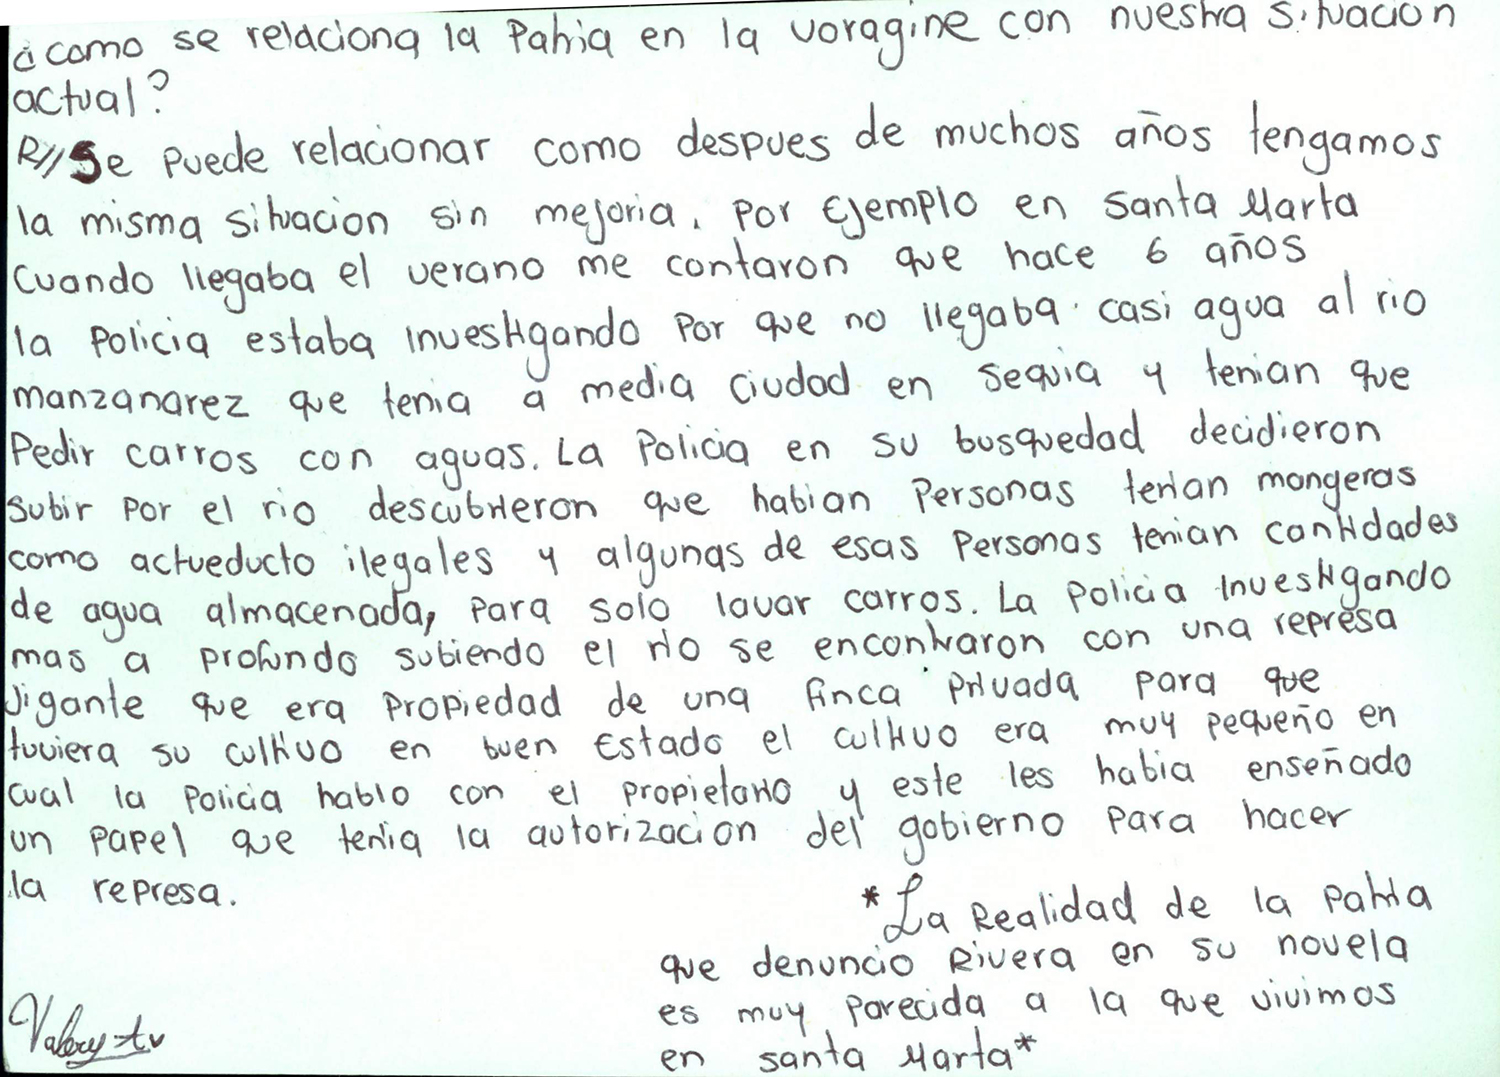 ¿como se relaciona la Patria en la voragine con nuestra situacion
actual?
R// Se Puede relacionar como despues de muchos años tengamos
la misma situacion sin mejoria. Por Ejemplo en Santa Marta
Cuando llegaba el verano me contaron que hace 6 años
la Policia estaba investigando Por que no llegaba casi agua al rio
manzanarez que tenia a media ciudad en sequia y tenian que
Pedir carros con aguas. La Policia en su busquedad decidieron
subir Por el rio descubrieron que habian Personas tenian mangeras
como actueducto ilegales y algunas de esas Personas tenian cantidades
de agua almacenada, Para solo lavar carros. La Policia Investigando
mas a profundo subiendo el rio se encontraron con una represa
Jigante que era Propiedad de una finca Privada para que
tuviera su cultivo en buen Estado el cultivo era muy pequeño en
cual la Policia hablo con el propietario y este les habia enseñado
un papel que tenia la autorizacion del gobierno Para hacer
la represa.
*La Realidad de la Patria
que denuncio Rivera en su novela
es muy parecida a la que vivimos
en santa Marta*
Valery A.v